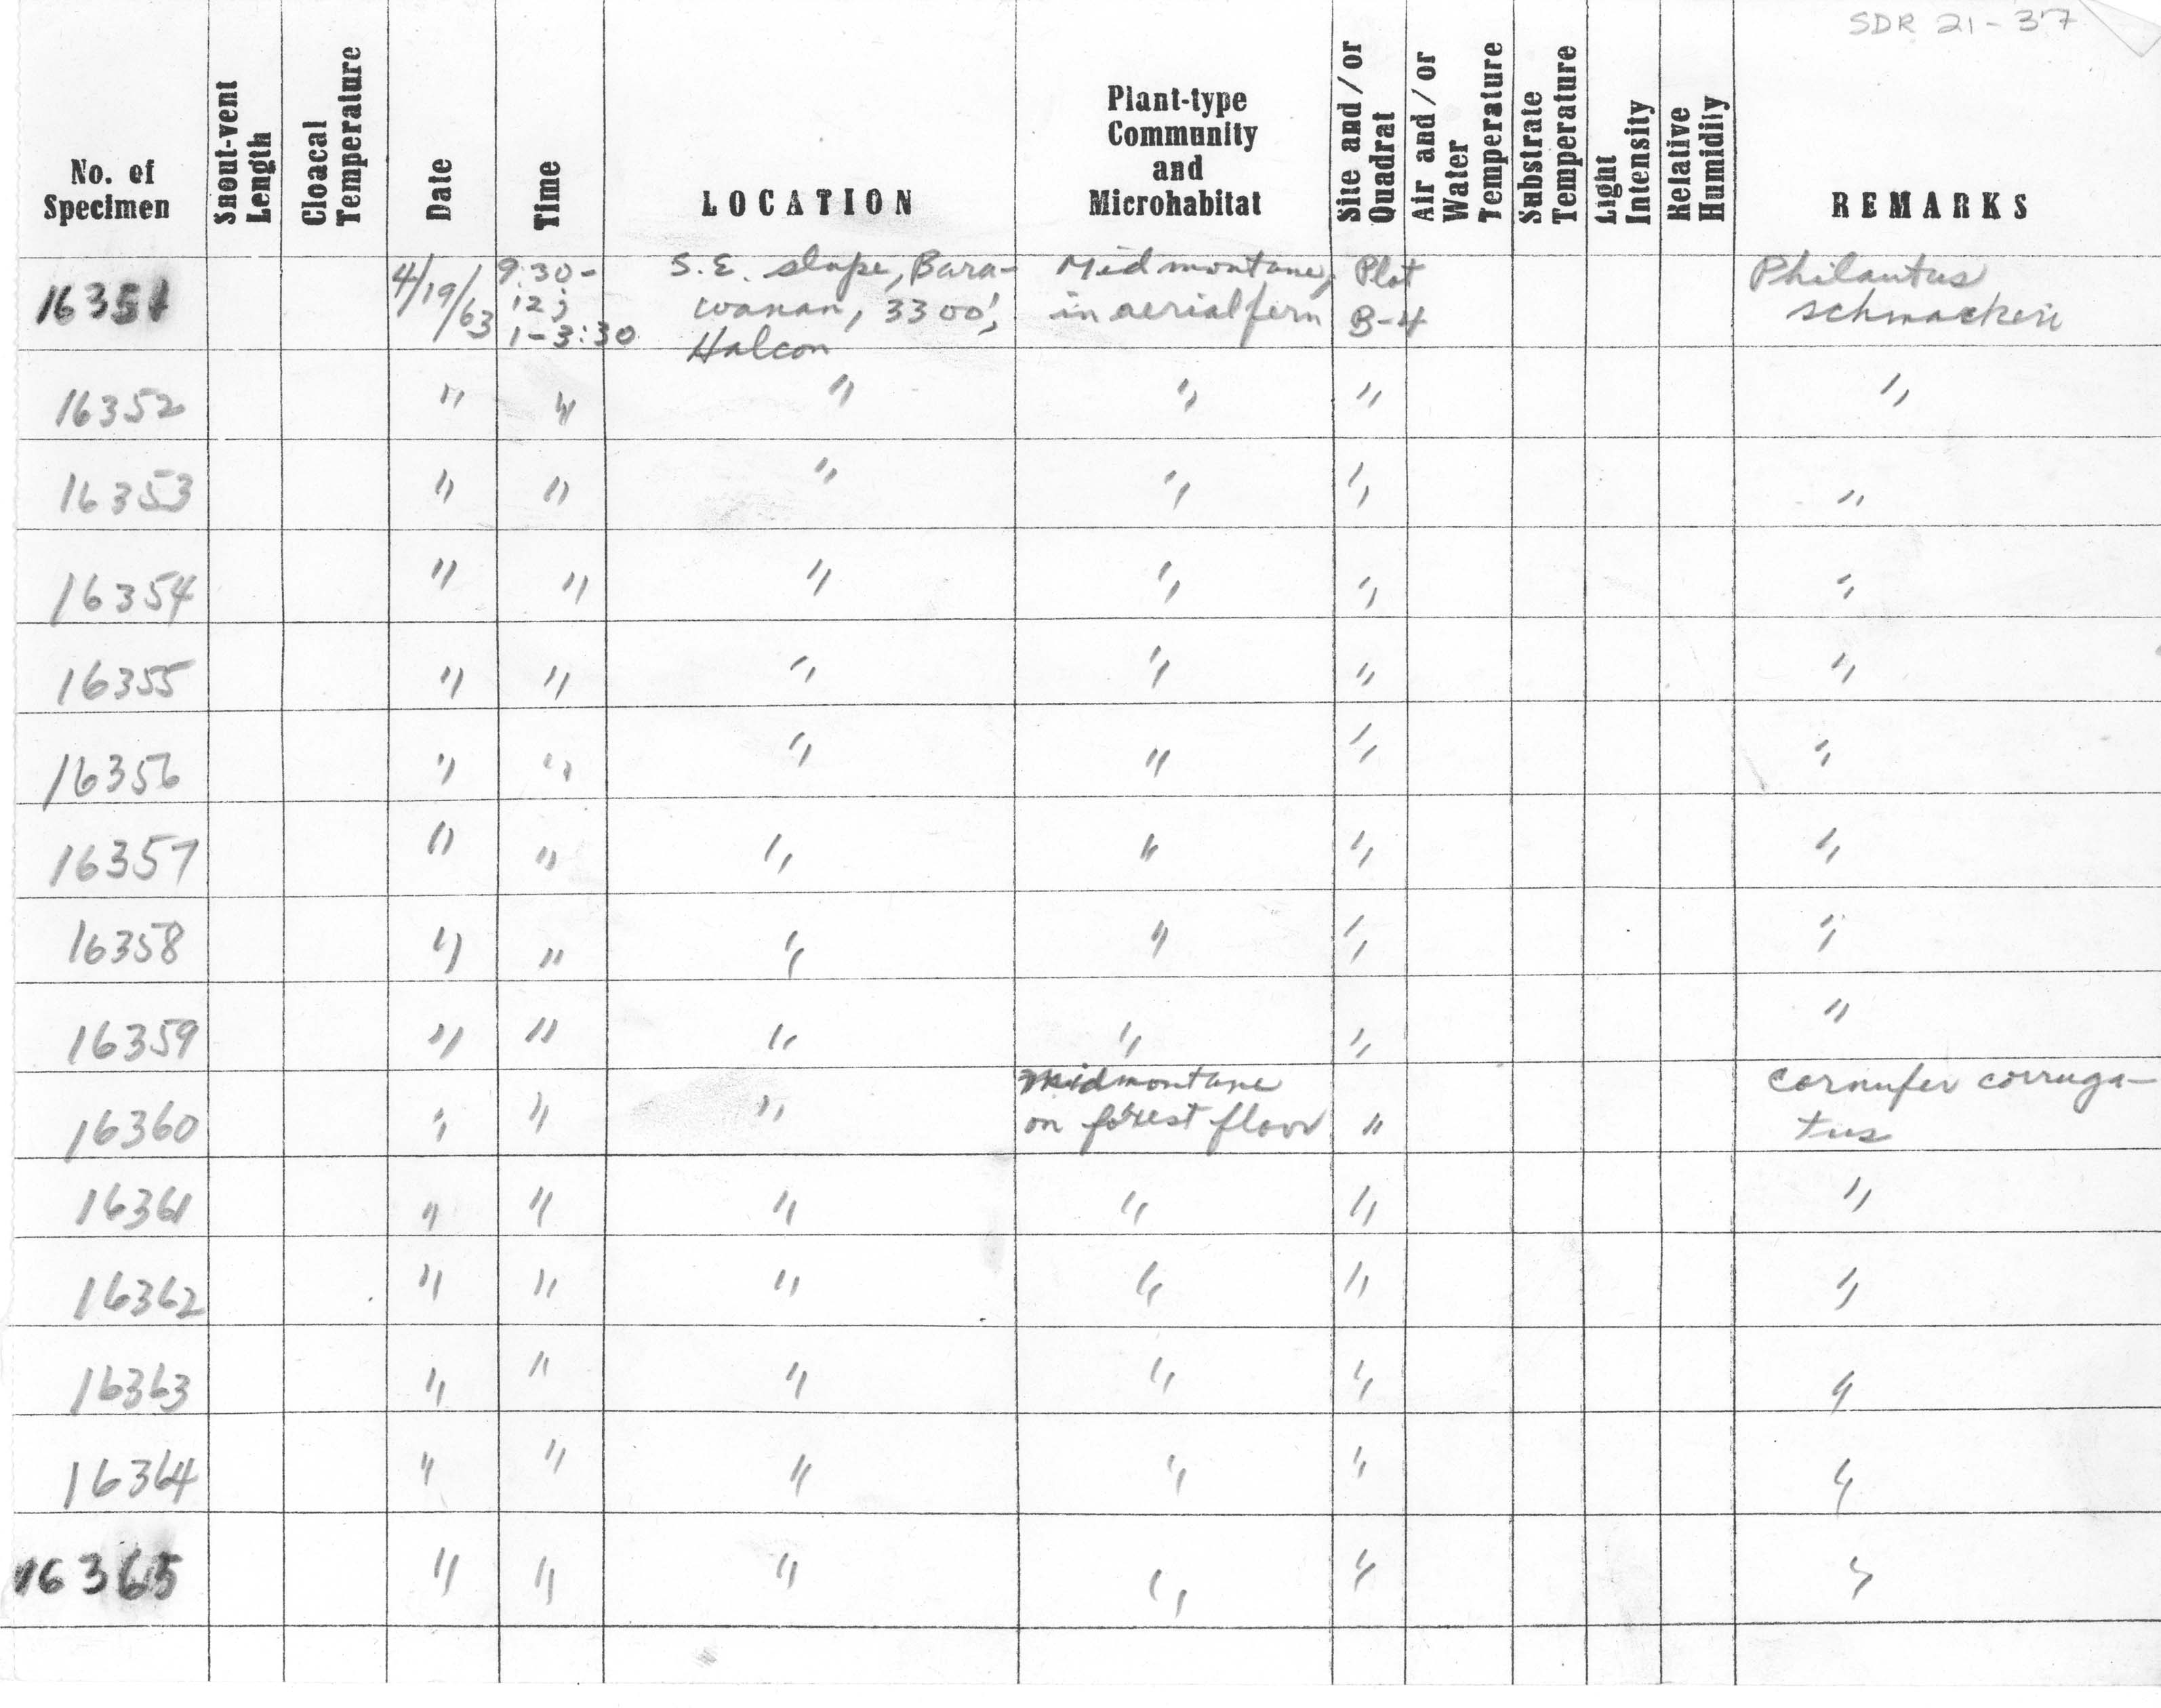 SDR 21-37
No. of Specimen | Snout-vent Length | Cloacal Temperature | Date | Time | LOCATION | Plant-type Community and Microhabitat | Site and/or Quadrat | Air and/or Water Temperature | Substrate Temperature | Light Intensity | Relative Humidity | REMARKS
16351 | 4/19/63 | 9:30-12; 1-3:30 | S.E. slope, Barawanan, 3300', Halcon | Midmontane, in aerial fern | Plot B-4 | Philautus schmackeri
16352 | " | " | " | " | " | "
16353 | " | " | " | " | " | "
16354 | " | " | " | " | " | "
16355 | " | " | " | " | " | "
16356 | " | " | " | " | " | "
16357 | " | " | " | " | " | "
16358 | " | " | " | " | " | "
16359 | " | " | " | " | " | "
16360 | " | " | " | Midmontane on forest floor | " | Cornufer corrugatus
16361 | " | " | " | " | " | "
16362 | " | " | " | " | " | "
16363 | " | " | " | " | " | "
16364 | " | " | " | " | " | "
16365 | " | " | " | " | " | "